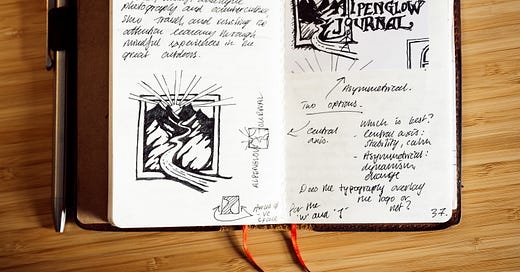 photography and
slow travel, and
attention
mindful experiences in the
great outdoors.
ALPENGLOW JOURNAL
Areas of
-ve
space
ALPENGLOW
JOURNAL
Asymmetrical.
Two options.
central
axis.
Which is best?
- Central axis:
stability, calm
- Asymmetrical:
dynamism,
change
Does the typography overlay
the logo or
not?
for the
'W' and 'J'
37.